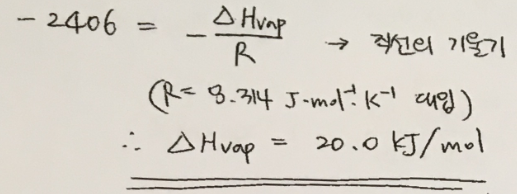 -2406 = -ΔHvap/R → 직선의 기울기
(R= 8.314 J·mol⁻¹·K⁻¹ 대입)
∴ ΔHvap = 20.0 kJ/mol